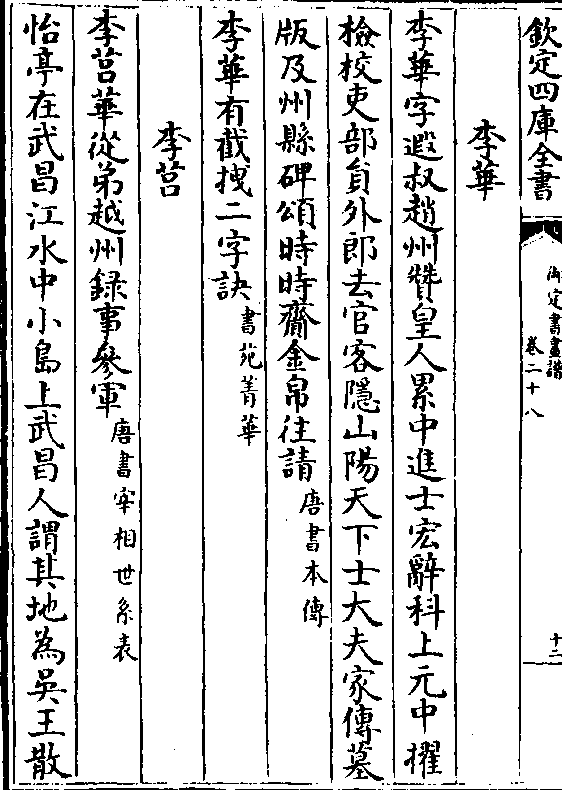 欽定四庫全書
御定書畫譜
卷二十八
十二
李華
李華字遐叔趙州贊皇人累中進士宏辭科上元中擢
檢校吏部員外郎去官客隱山陽天下士大夫家傳墓
版及州縣碑頌時時齎金帛往請唐書本傳
李華有截拽二字訣書苑菁華
李莒
李莒華從弟越州録事參軍唐書宰相世系表
怡亭在武昌江水中小島上武昌人謂其地為吳王散